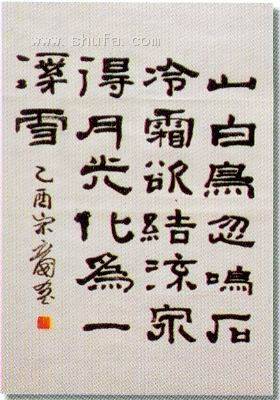 www.shufa.com
山白鳥忽鳴石
冷霜欲結流泉
得月光化為一
溪雪
乙酉宋